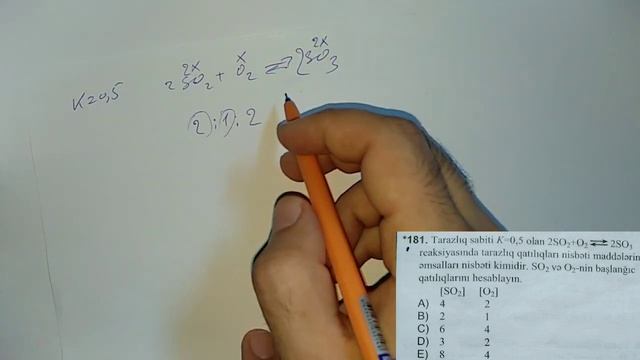 2x x 2x
K=0,5 2SO₂ + O₂ ⇌ 2SO₃
2 : 1 : 2
*181. Tarazlıq sabiti K=0,5 olan 2SO₂+O₂ ⇌ 2SO₃
reaksiyasında tarazlıq qatılıqları nisbəti maddələrin
əmsalları nisbəti kimidir. SO₂ və O₂-nin başlanğıc
qatılıqlarını hesablayın.
[SO₂] [O₂]
A) 4 2
B) 2 1
C) 6 4
D) 3 2
E) 8